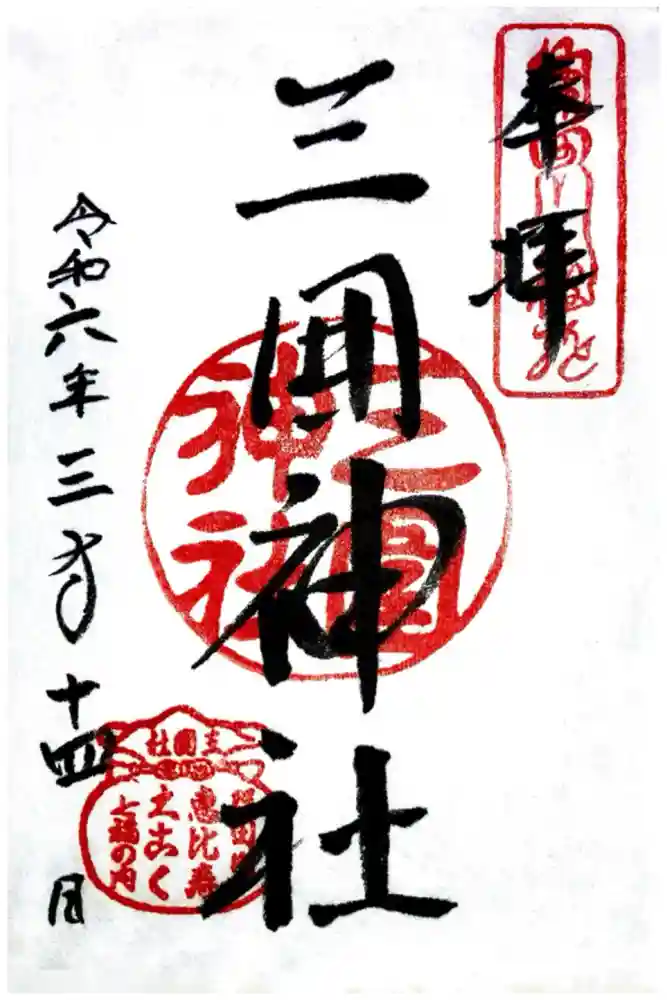 奉拝
三囲神社
三圍
神社
令和六年三月十四日
三圍社
恵比寿
大こく
七福の内